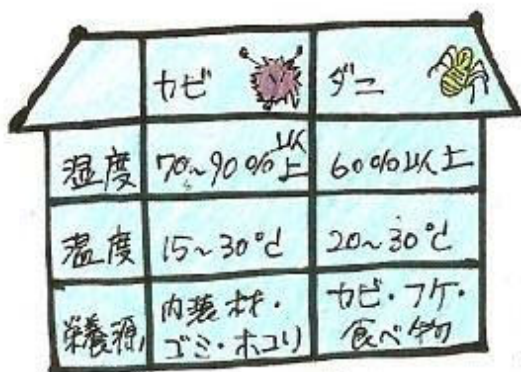 カビ ダニ
湿度 70~90%以上 60%以上
温度 15~30℃ 20~30℃
栄養源 内装材・ カビ・フケ・
ゴミ・ホコリ 食べ物